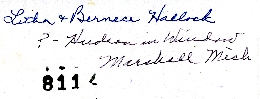 Litha & Bernece Hallock
? - Hudson in Window
Marshall Mich
811